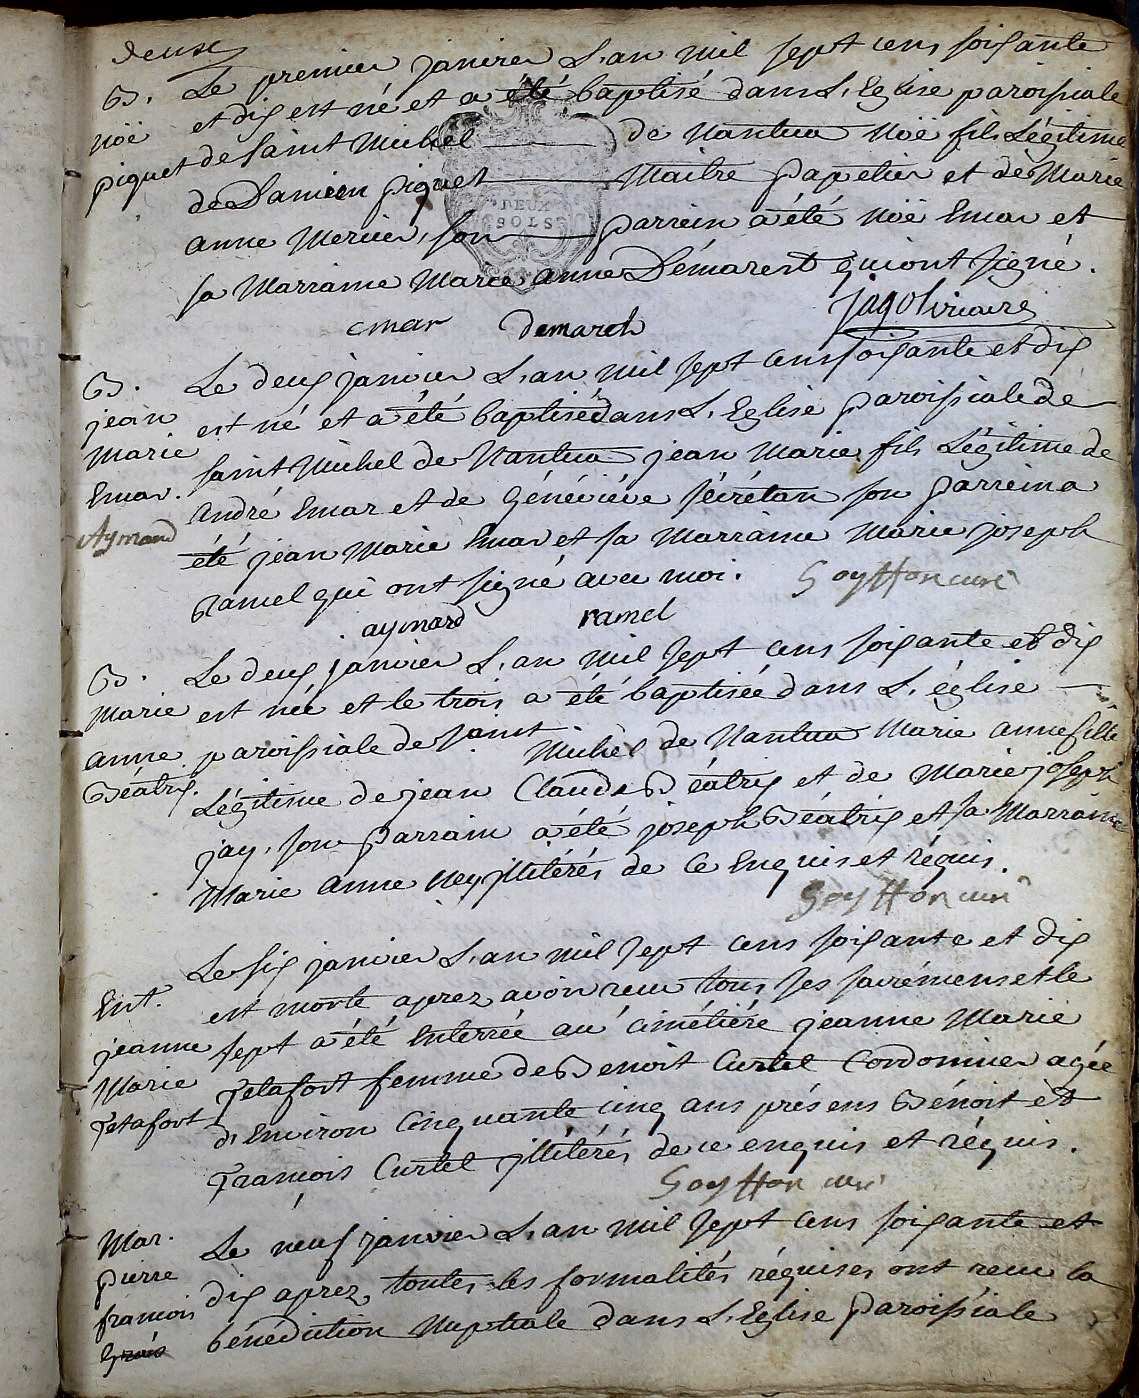 deux
B. Le premier janvier L'an mil sept cens soixante
Noë et dix est né et a été baptisé dans L'Eglise paroissiale
piquet de saint Michel de Nantua Noë fils Légitime
de Damien piquet Maitre papetier et de Marie
DEUX
SOLS
anne Mercier, son parrein a été Noë Emar et
sa Marraine Marie anne Démarest qui ont signé.
emar demarest jagot vicaire
B. Le deux janvier L'an mil sept cens soixante et dix
jean est né et a été baptisé dans L'Eglise paroissiale de
Marie saint Michel de Nantua jean Marie fils Légitime de
Emar. André Emar et de Généviéve sécrétan son parrein a
Aymard été jean Marie Emar et sa Marraine Marie joseph
Ramel qui ont signé avec moi. Goyffon curé
aymard ramel
B. Le deux janvier L'an mil sept cens soixante et dix
Marie est née et le trois a été baptisée dans L'église
anne paroissiale de saint Michel de Nantua Marie anne fille
Béatrix. Légitime de jean Claude Béatrix et de Marie joseph
jay, son parrain a été joseph Béatrix et sa Marraine
Marie anne Ney illitérés de ce Enquis et réquis.
Goyffon curé
Le six janvier L'an mil sept cens soixante et dix
Ent. est morte aprez avoir reçu tous ses sacrémens et le
jeanne sept a été Enterrée au cimétiére jeanne Marie
Marie Tetafort femme de Benoit Curtet Cordonnier agée
Tetafort d'Environ Cinquante cinq ans présens Bénoit et
François Curtet illitérés de ce enquis et réquis.
Goyffon curé
Mar. Le neuf janvier L'an mil sept cens soixante et
pierre dix aprez toutes les formalités réquises ont reçu la
francois bénédiction Nuptiale dans L'Eglise paroissiale